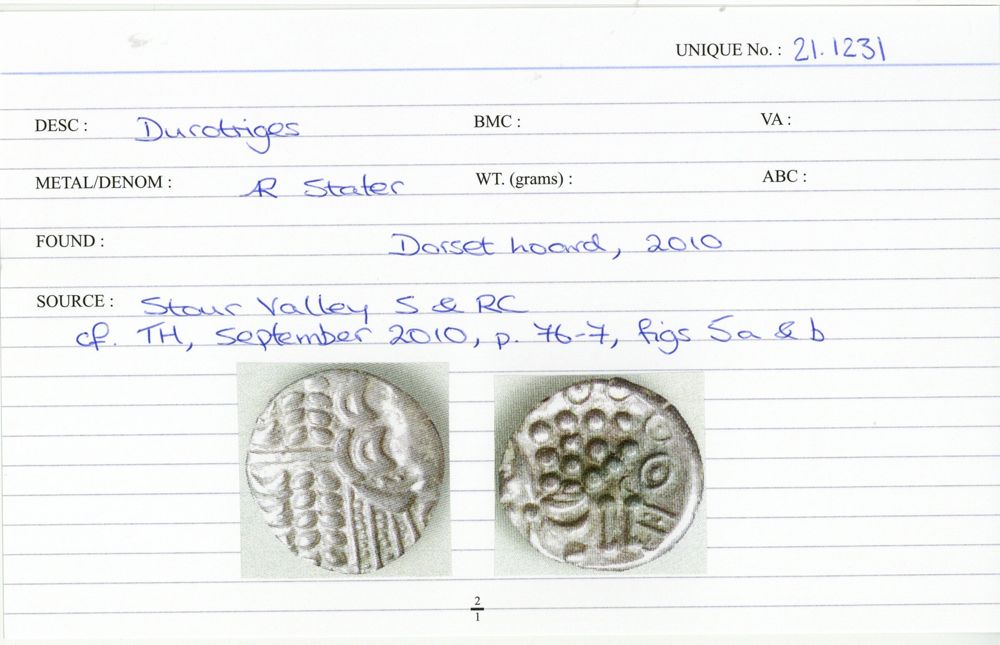 UNIQUE No. : 21.1231
DESC : Durotriges BMC : VA :
METAL/DENOM : AR Stater WT. (grams) : ABC :
FOUND : Dorset hoard, 2010
SOURCE : Stour Valley S & RC
cf. TH, September 2010, p. 76-7, figs 5a & b
2
1